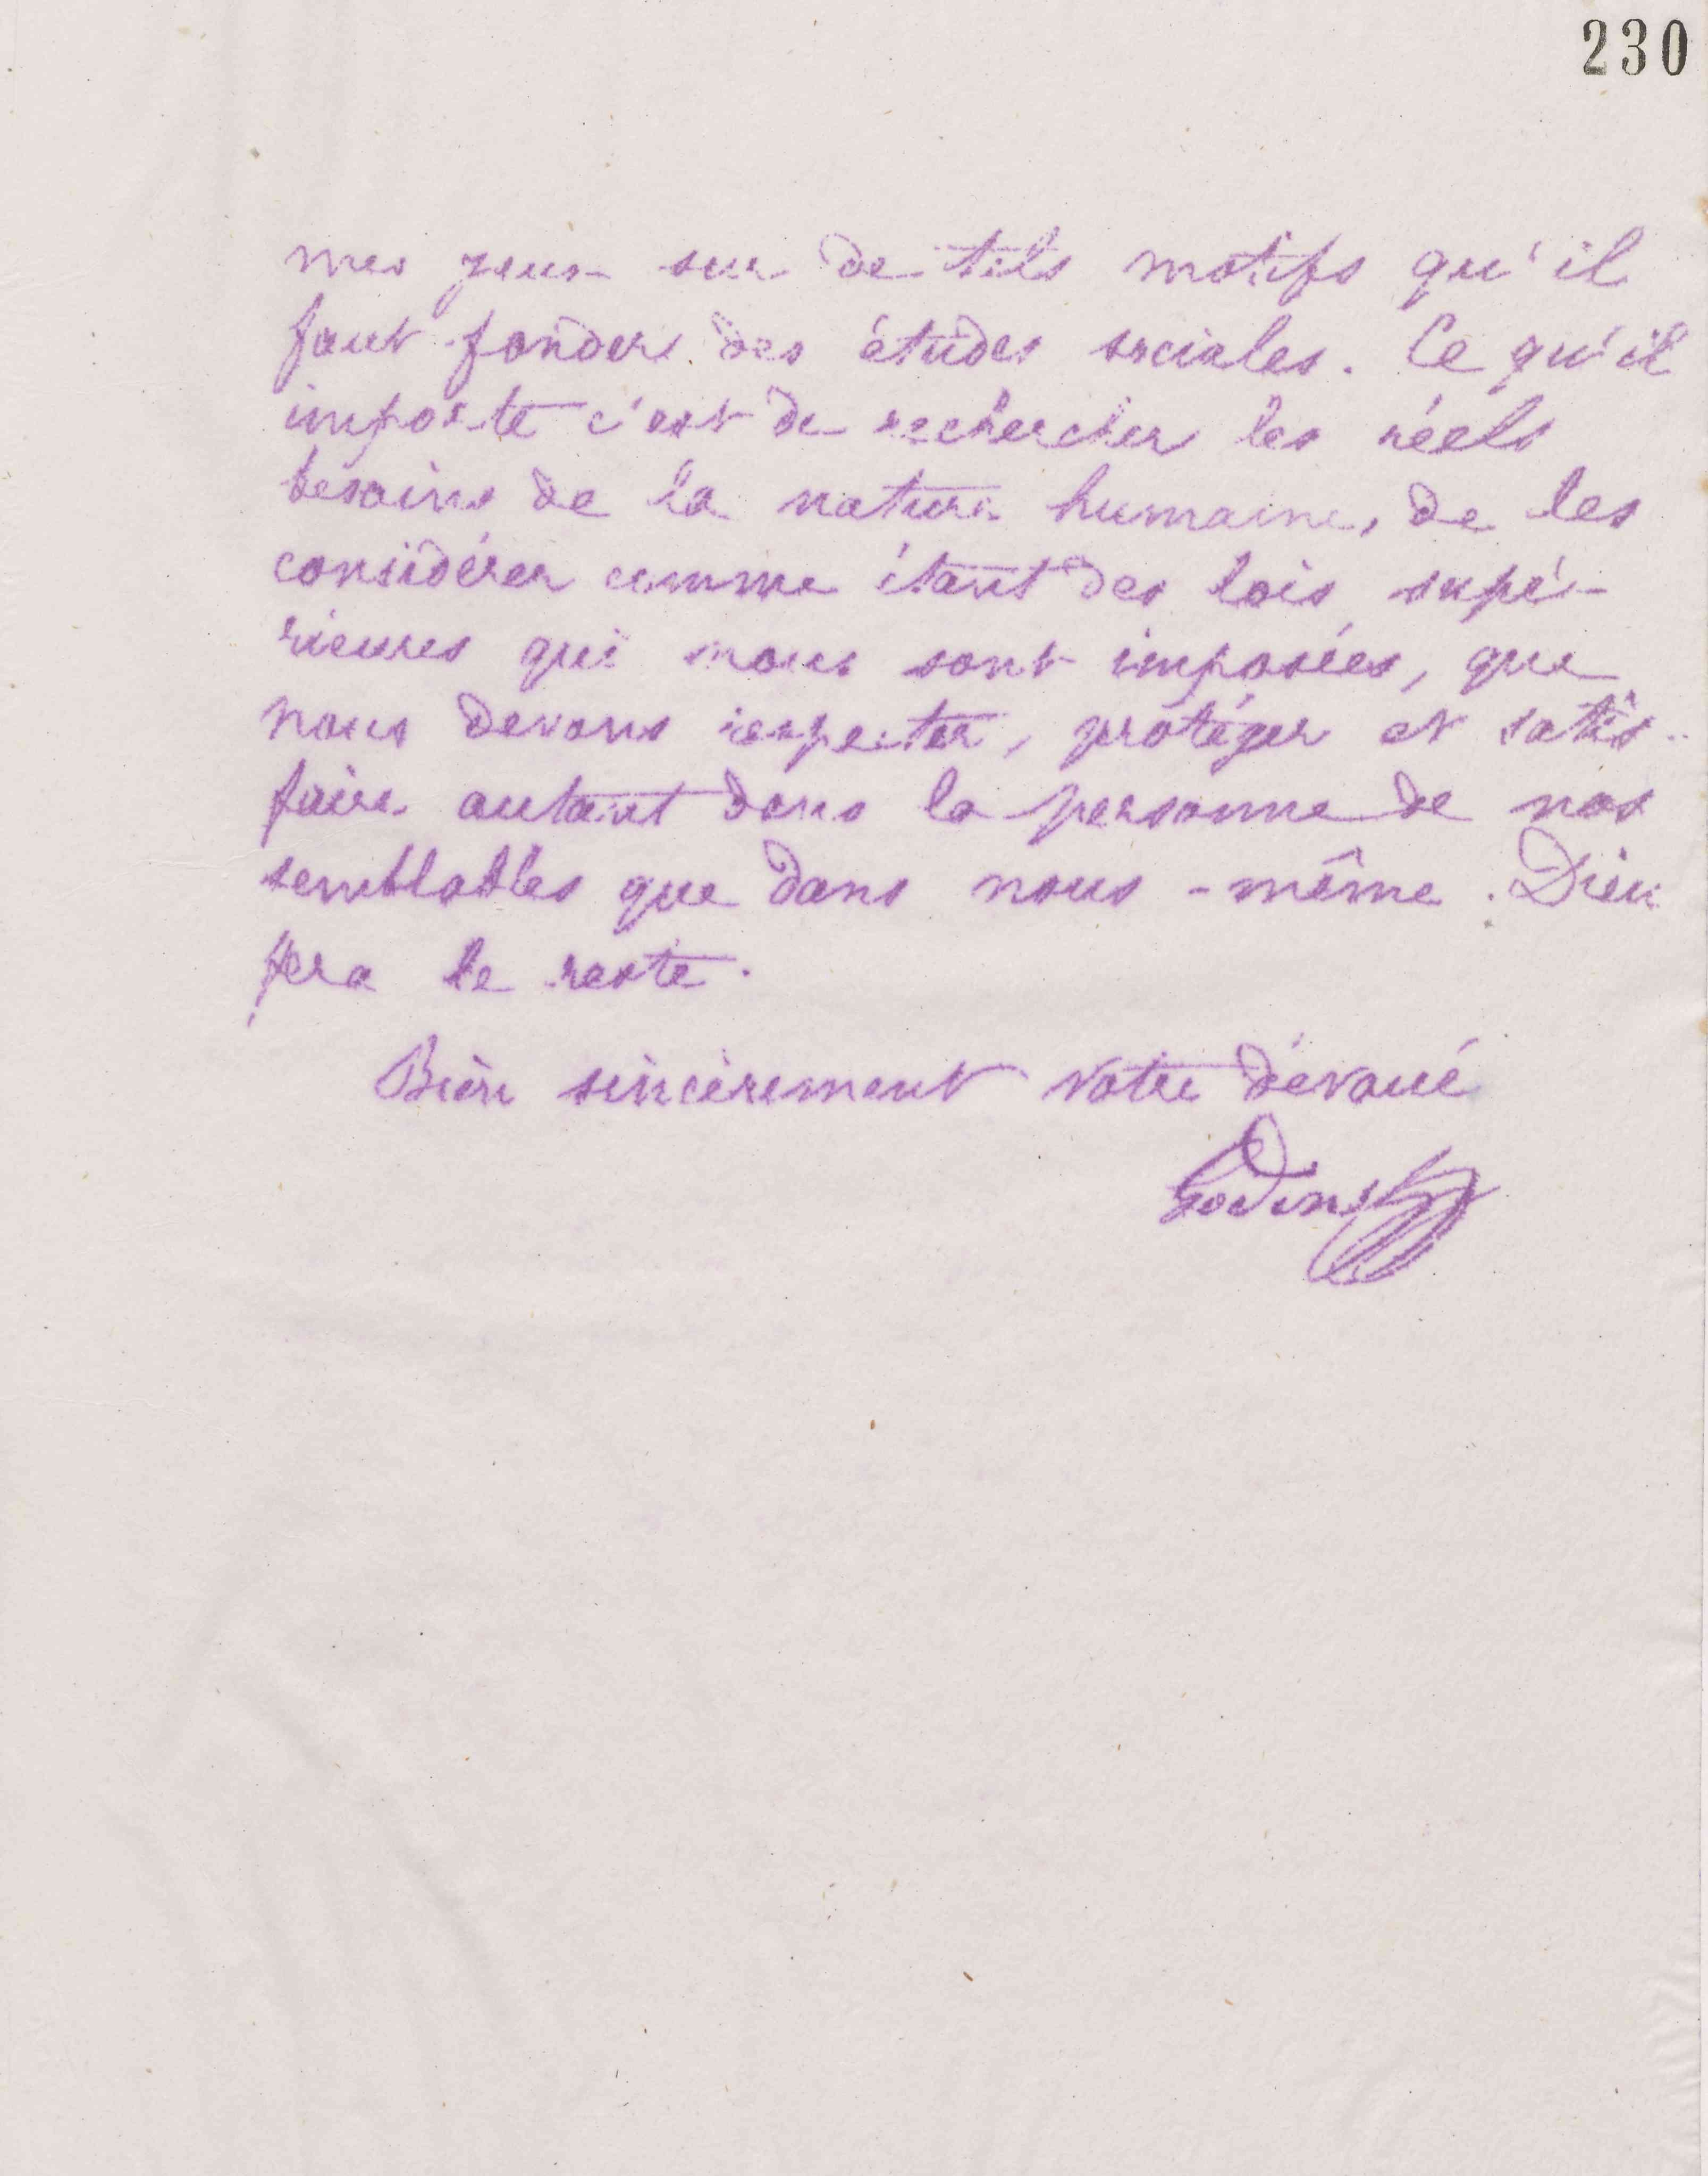 230
mes yeux sur de tels motifs qu'il
faut fonder des études sociales. Ce qu'il
importe c'est de rechercher les réels
besoins de la nature humaine, de les
considérer comme étant des lois supé-
rieures qui nous sont imposées, que
nous devons respecter, protéger et satis-
faire autant dans la personne de nos
semblables que dans nous-même. Dieu
fera le reste.
Bien sincèrement votre dévoué
Godin